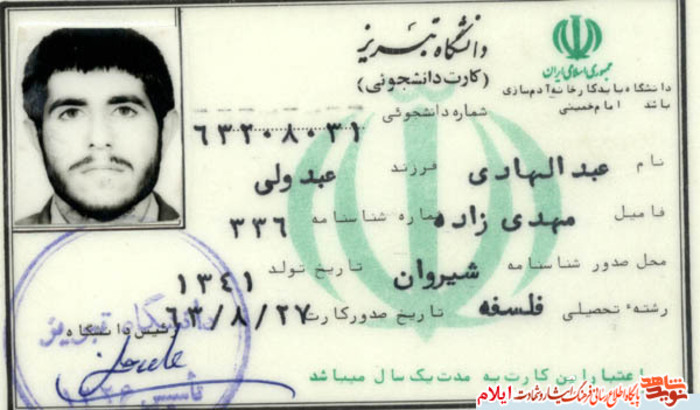 جمهوری اسلامی ایران
دانشگاه تبریز
(کارت دانشجوئی)
دانشگاه باید کارخانه آدم سازی باشد امام خمینی
شماره دانشجوئی ۶۳۲۰۸۰۳۱
نام عبدالهادی فرزند عبدولی
فامیل مهدی زاده شماره شناسنامه ۳۳۶
محل صدور شناسنامه شیروان تاریخ تولد ۱۳۴۱
رشته تحصیلی فلسفه تاریخ صدورکارت ۶۳/۸/۲۷
رئیس دانشگاه
دانشگاه تبریز
اعتبار این کارت به مدت یک سال میباشد
نوید شاهد
پایگاه اطلاع رسانی فرهنگ ایثار و شهادت ایلام